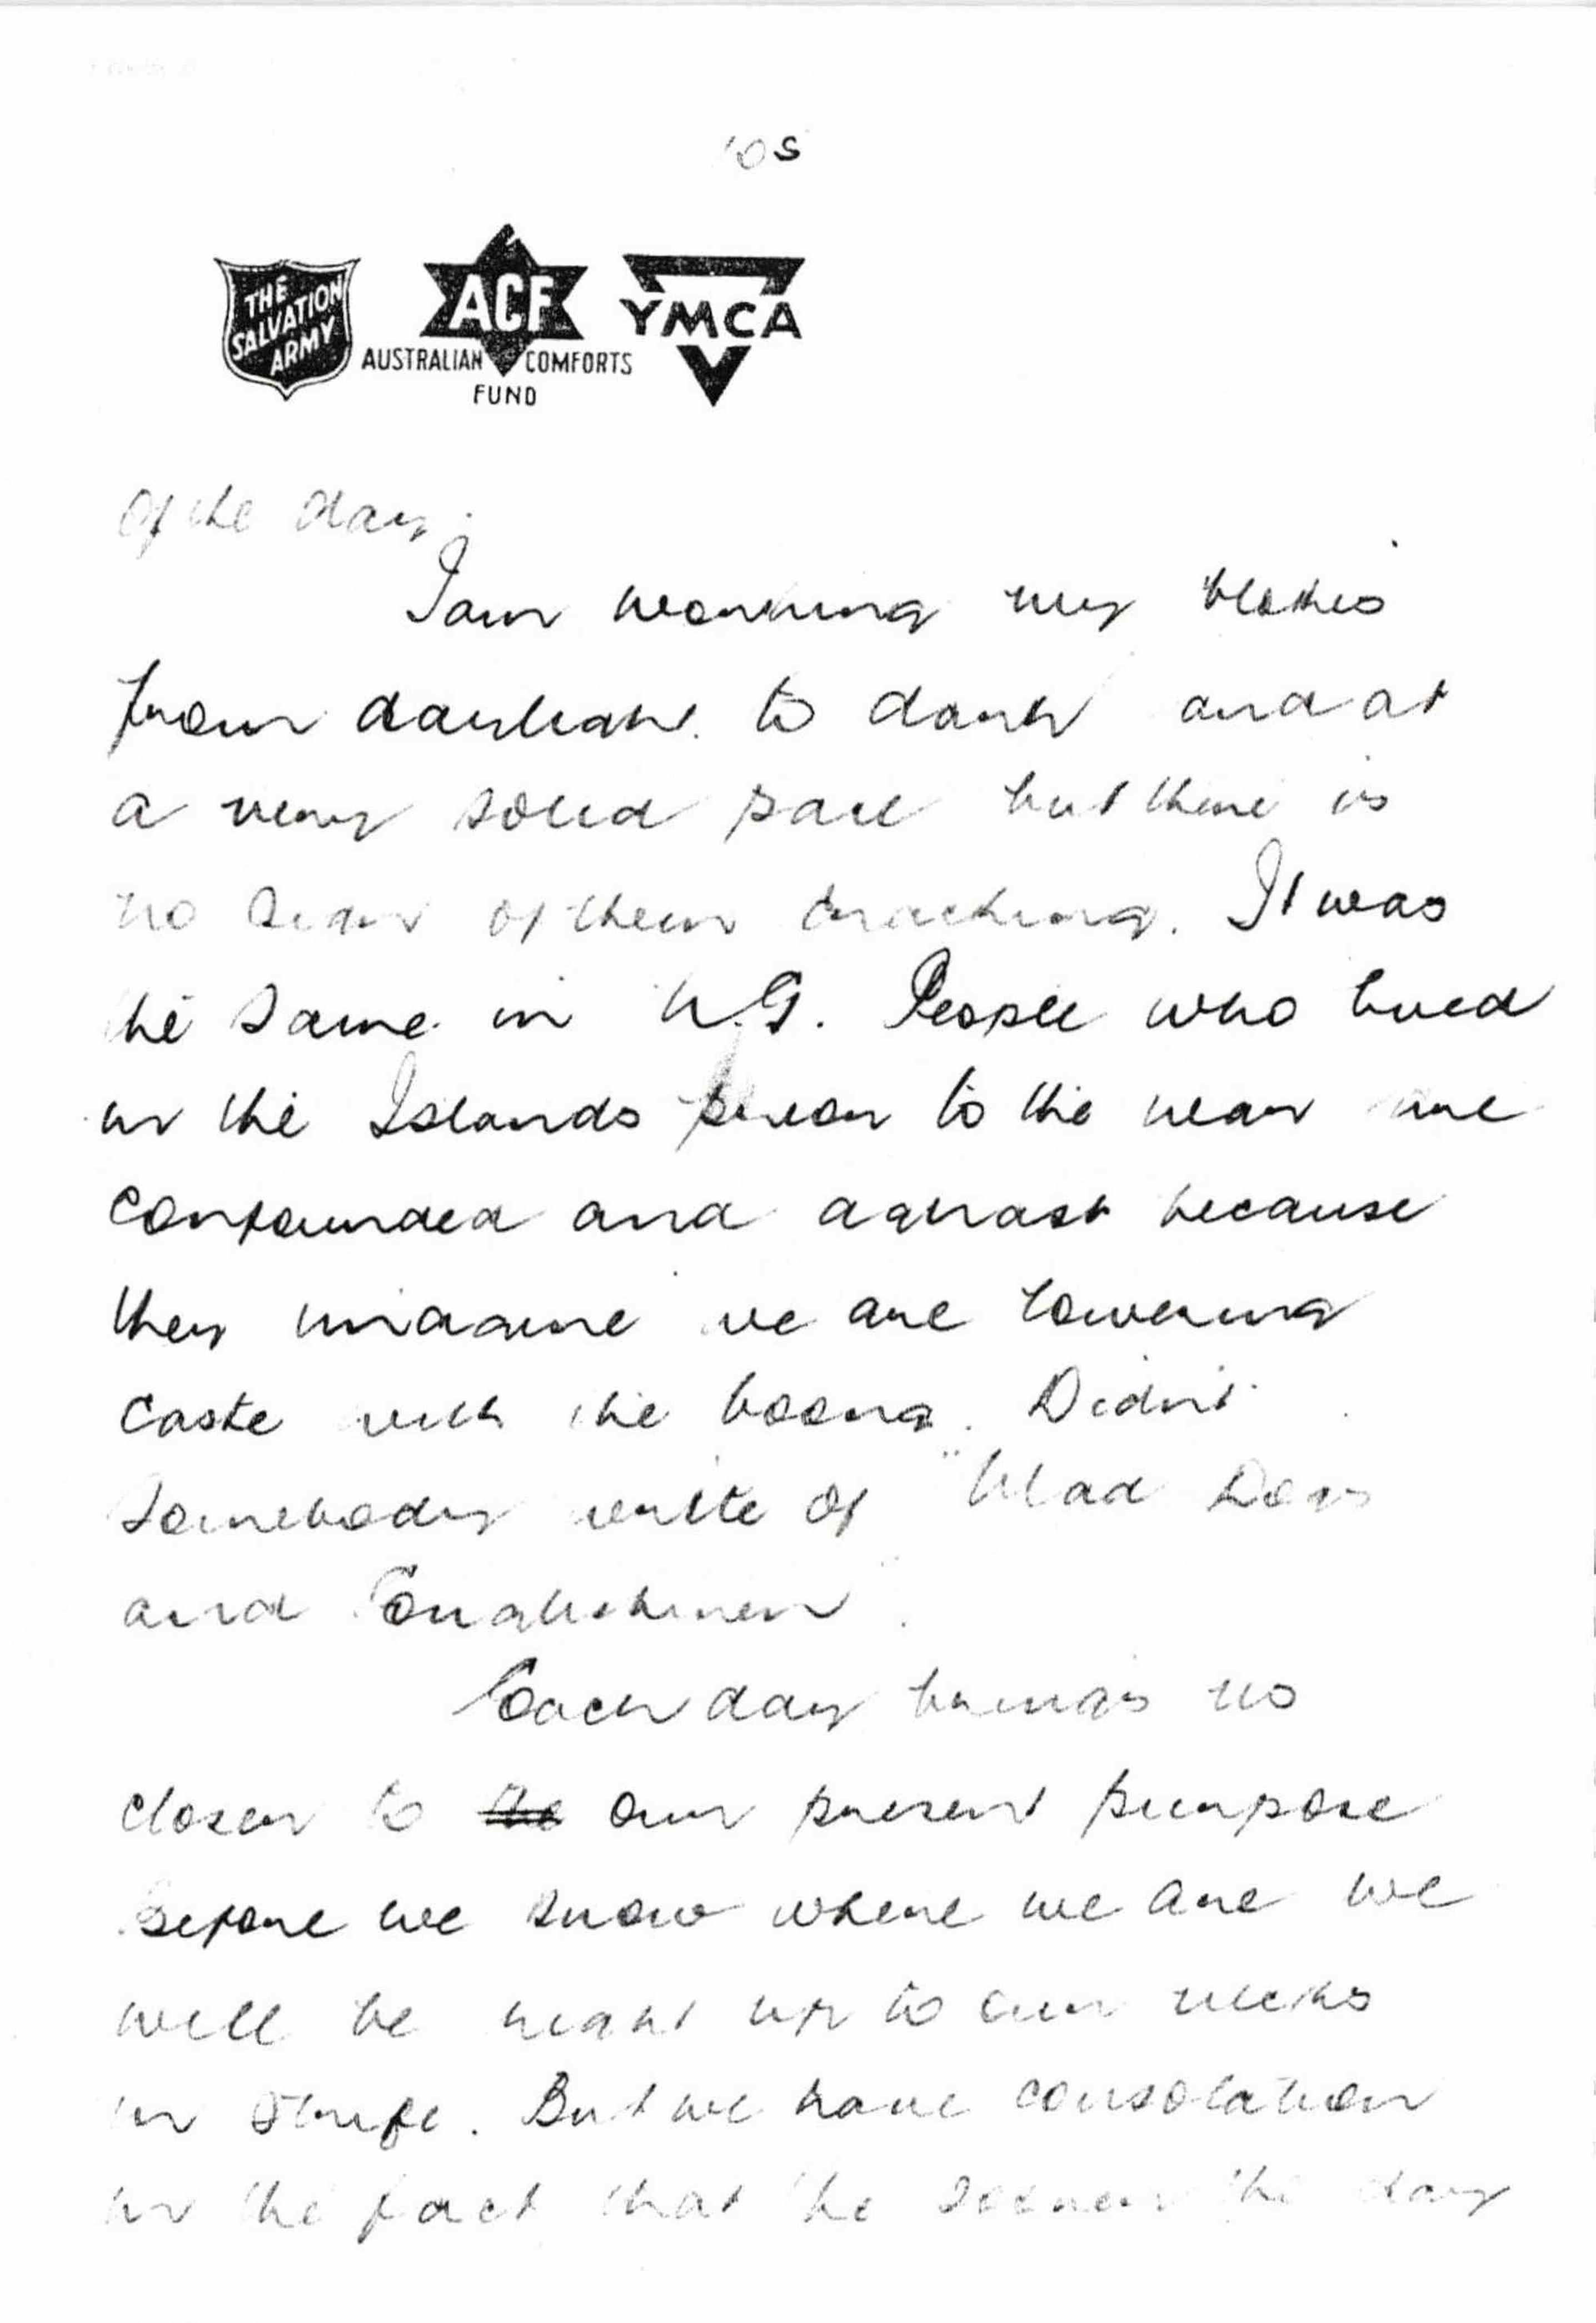 105
THE SALVATION ARMY
ACF
AUSTRALIAN COMFORTS FUND
YMCA
of the day.
I am working my blokes
from daylight to dark and at
a very solid pace but there is
no sign of them cracking. It was
the same in N.G. People who lived
in the Islands prior to the war are
confounded and aghast because
they imagine we are lowering
caste with the boong. Didn't
somebody write of "Mad Dogs
and Englishmen".
Each day brings us
closer to our present purpose
Before we know where we are we
will be right up to our necks
in strife. But we have consolation
in the fact that the sooner the day